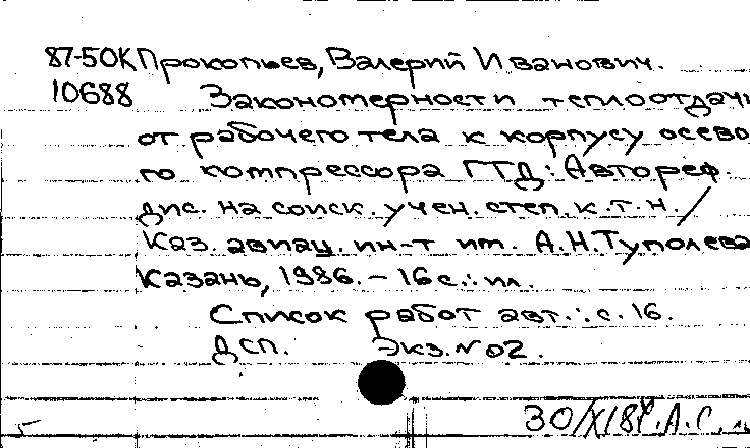 87-50К Прокопьев, Валерий Иванович.
10688 Закономерности теплоотдачи
от рабочего тела к корпусу осево
го компрессора ГТД: Автореф.
дис. на соиск. учен. степ. к.т.н./
Каз. авиац. ин-т им. А.Н.Туполева
Казань, 1986. - 16 с.: ил.
Список работ авт.: с. 16.
ДСП. Экз. № 02.